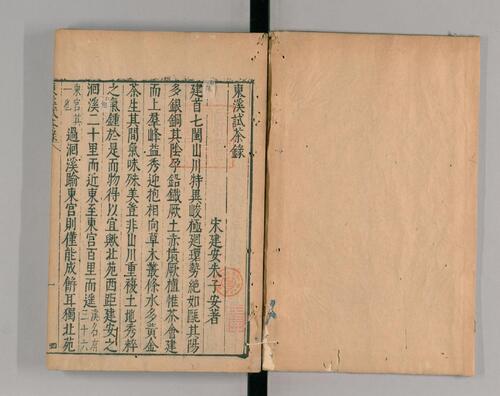 東溪試茶錄
宋建安朱子安著
建首七閩山川特異峻極迴環勢絕如甌其陽
多銀銅其陰孕鉛鐵厥土赤墳厥植惟茶會建
而上羣峰益秀迎抱相向草木叢條水多黃金
茶生其間氣味殊美豈非山川重複土地秀粹
之氣鍾於是而物得以宜歟北苑西距建安之
洄溪二十里而近東至東宮百里而遙溪名有三十六
東宮其一也過洄溪踰東宮則僅能成餅耳獨北苑